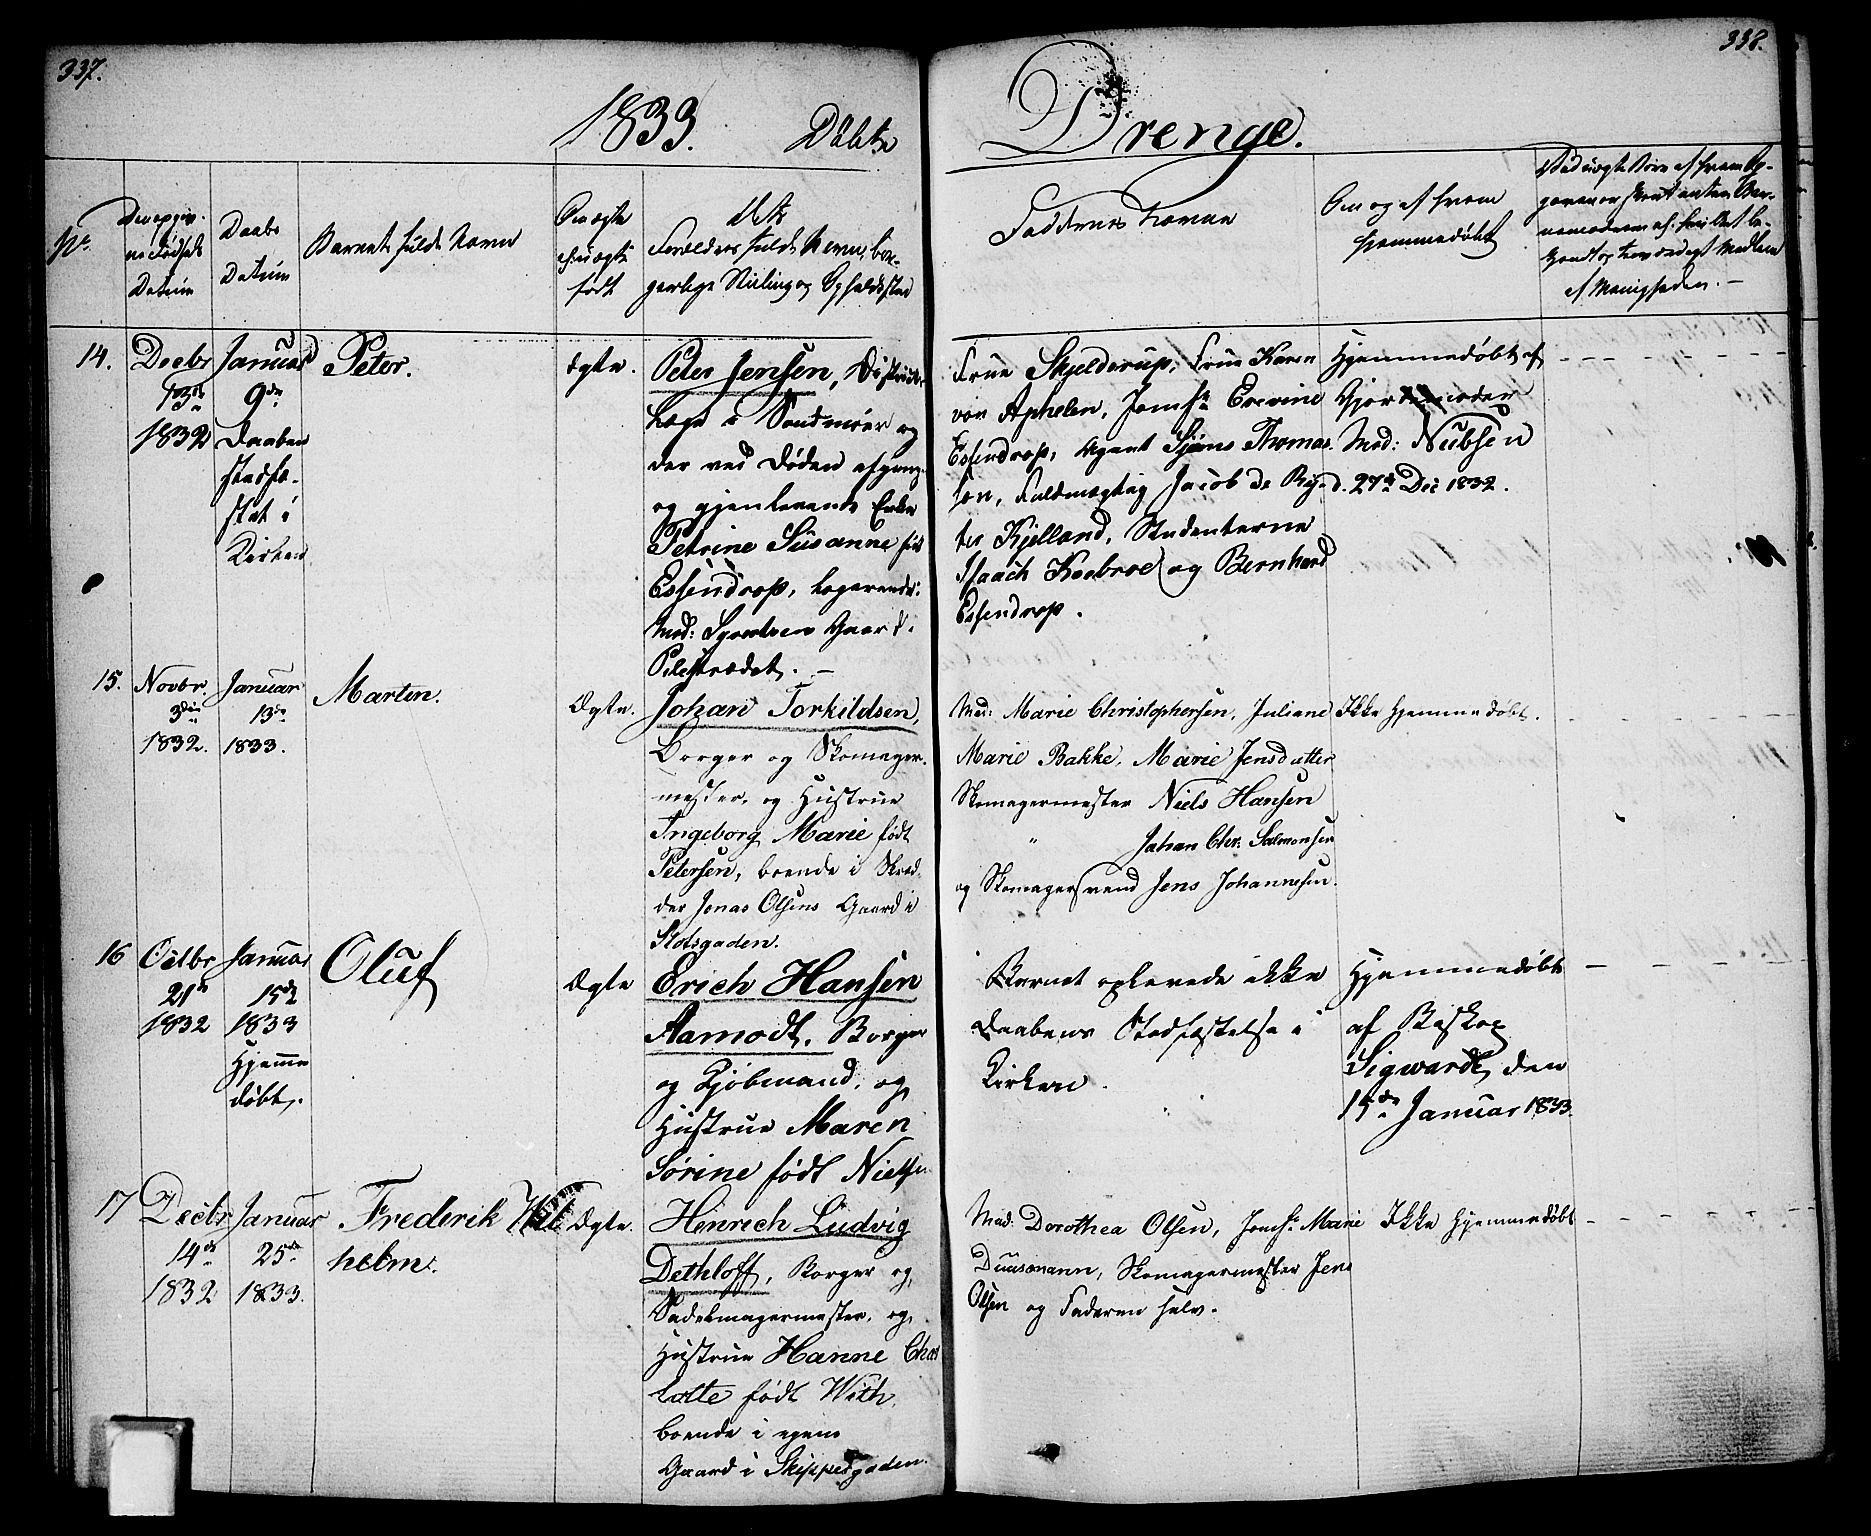 337.
338.
1833. Döbte
Drenge.
No.
Den opgiv-
ne Fødsels
Datum
Daabs
Datum
Barnets fulde Navn
Om ægte
el: uægte
født
Forældres fulde Navn, bor-
gerlige Stilling og Opholdssted
Faddernes Navne
Om og af hvem
hjemmedøbt
af Menigheden. —
14.
Decbr
13de
1832
Januar
9de
Daaben
stadfæ-
stet i
Kirken
Peter.
Ægte.
Peter Jensen, Distrikts-
læge i Søndmør og
der ved Døden afgang.
og gjenlevende Enke
Petrine Süsanne født
Essendrop, logerende i
Mad: Gaard i
Pilestrædet. —
Frue Skjelderup, Frue Karen
von Aphelen, Jomfr Everine
Essendrop, Agent Sjøns Thomas-
sen, Fuldmægtig Jacob de Ryd-
ter Kjelland, Studenterne
Isaach Koebroe og Bernhard
Essendrop.
Hjemmedøbt af
Gjordemoder
Mad: Nübsen
d. 27de Dec 1832.
15.
Novbr.
3die
1832.
Januar
13de
1833.
Marten.
Ægte.
Johan Torkildsen,
Borger og Skomager-
mester, og Hustrue
Ingeborg Marie født
Petersen, boende i Skræd-
der Jonas Olsens Gaard i
Slotsgaden.
Mad: Marie Christophersen, Juliane
Marie Bakke, Marie Jensdatter
Skomagermester Niels Hansen
" Johan Chr. Salmonsen
og Skomagersvend Jens Johannesen.
Ikke Hjemmedøbt.
16
Octbr
21de
1832
Januar
15de
1833
Hjemme
døbt.
Oluf
Ægte
Erich Hansen
Aamodt, Borger
og Kjøbmand, og
Hustrue Maren
Sørine født Nielsen
Barnet oplevede ikke
Daabens Stadfæstelse i
Kirken.
Hjemmedøbt
af Biskop
Sigwardt den
15de Januar 1833.
17
Decbr
14de
1832
Januar
25de
1833.
Frederik Wil
helm.
Ægte.
Henrich Ludvig
Dethloff, Borger og
Sadelmagermester, og
Hustrue Hanne Char
lotte født With,
boende i egen
Gaard i Skippergaden.
Mad: Dorothea Olsen, Jomfr Marie
Duusmann, Skomagermester Jens
Olsen og Faderen selv.
Ikke Hjemmedøbt